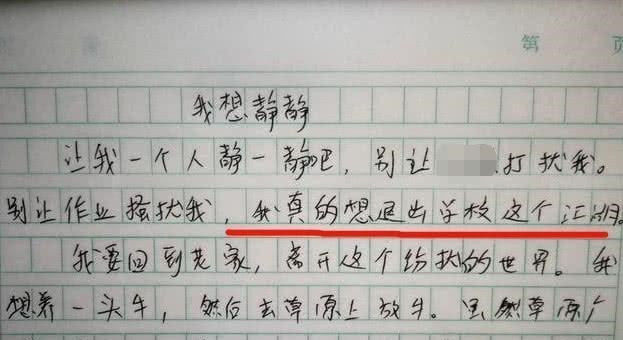 第 页
我想静静
让我一个人静一静吧，别让打扰我。
别让作业搔扰我，我真的想退出学校这个江湖。
我要回到老家，离开这个纷扰的世界。我
想养一头牛，然后去草原上放牛。虽然草原广